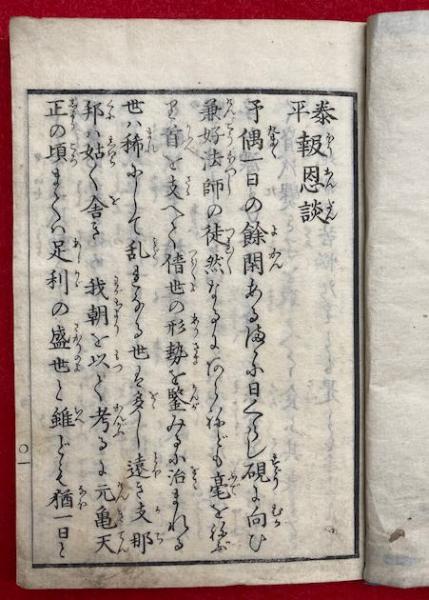 泰平報恩談
予偶一日の餘閑あるまゝに日くらし硯に向ひ
兼好法師の徒然なるにはあらねども毫を
首を支へて倩世の形勢を鑒みるに治まれる
世ハ稀にして乱れたる世ハ多し遠き支那
邦ハ姑く舎き我朝を以て考るに元亀天
正の頃まてハ足利の盛世と雖ども猶一日と